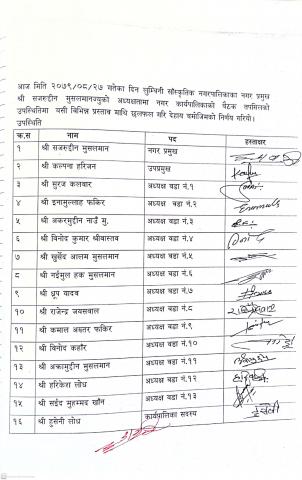 आज मिति २०७९/०८/२७ गतेका दिन लुम्बिनी साँस्कृतिक नगरपालिकाका नगर प्रमुख
श्री सजरुद्दीन मुसलमानज्युको अध्यक्षतामा नगर कार्यपालिकाको बैठक तपसिलको
उपस्थितिमा यसी विभिन्न प्रस्ताव माथि छलफल गरि देहाय बमोजिमको निर्णय गरियो।
उपस्थिति
क्र.स नाम पद हस्ताक्षर
१ श्री सजरुद्दीन मुसलमान नगर प्रमुख
२ श्री कल्पना हरिजन उपप्रमुख
३ श्री सुरज कलवार अध्यक्ष वडा नं.१
४ श्री इनामुल्लाह फकिर अध्यक्ष वडा नं.२
५ श्री अकरमुद्दीन नाउँ मु. अध्यक्ष वडा नं.३
६ श्री विनोद कुमार श्रीवास्तव अध्यक्ष वडा नं.४
७ श्री खुर्सेद आलम मुसलमान अध्यक्ष वडा नं.५
८ श्री नईमुल हक मुसलमान अध्यक्ष वडा नं.६
९ श्री ध्रुप यादव अध्यक्ष वडा नं.७
१० श्री राजेन्द्र जयसवाल अध्यक्ष वडा नं.८
११ श्री कमाल अख्तर फकिर अध्यक्ष वडा नं.९
१२ श्री विनोद कहाँर अध्यक्ष वडा नं.१०
१३ श्री अक्रामुद्दीन मुसलमान अध्यक्ष वडा नं.११
१४ श्री हरिकेश लोध अध्यक्ष वडा नं.१२
१५ श्री सईद मुहम्मद खाँन अध्यक्ष वडा नं.१३
१६ श्री हुसेनी लोध कार्यपालिका सदस्य